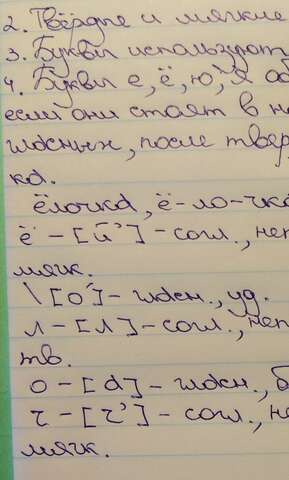 2. Твёрдые и мягкие
3. Буквы используют
4. Буквы е, ё, ю, я об
если они стоят в н
гласных, после твер
ка.
ёлочка, ё-ло-чка
ё - [й’] - согл., неп
мягк.
\ [о́] - гласн., уд.
л - [л] - согл., неп
тв.
о - [а] - гласн., б
ч - [ч’] - согл., не
мягк.